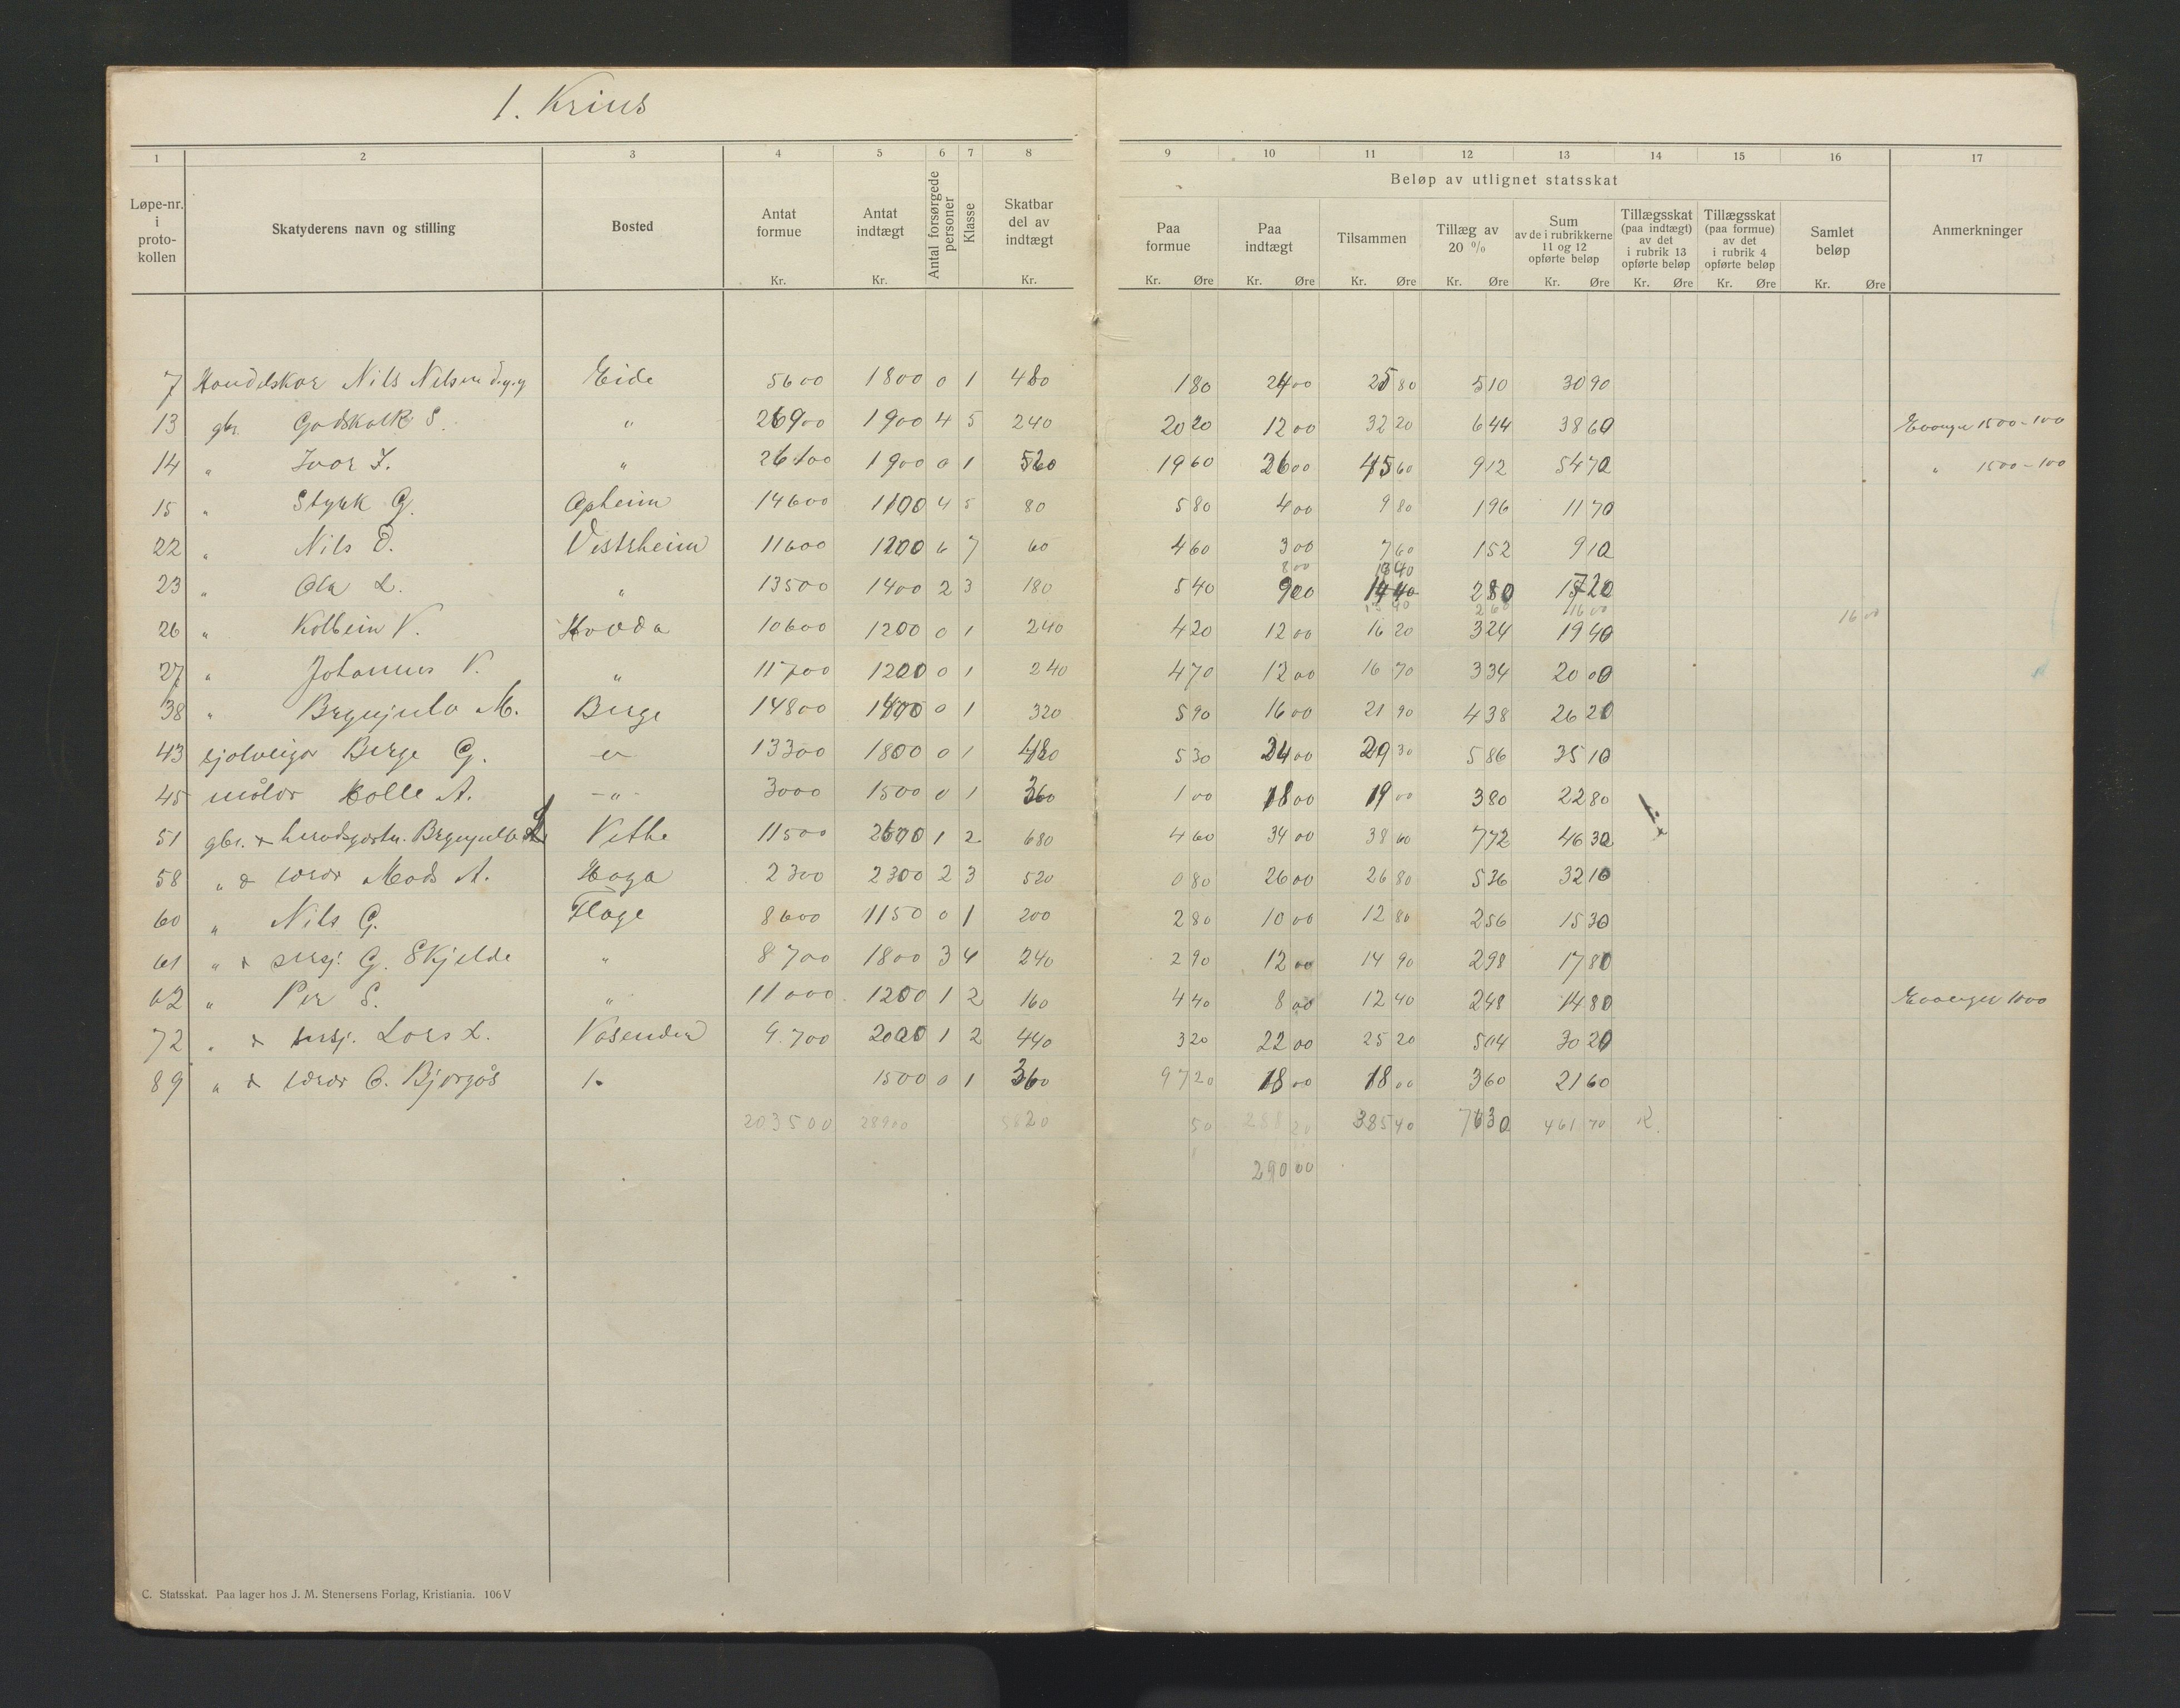 1. Krins
1 2 3 4 5 6 7 8 9 10 11 12 13 14 15 16 17
Løpe-nr. i proto-kollen
Skatyderens navn og stilling
Bosted
Antat formue Kr.
Antat indtægt Kr.
Antal forsørgede personer
Klasse
Skatbar del av indtægt Kr.
Beløp av utlignet statsskat
Paa formue Kr. Øre
Paa indtægt Kr. Øre
Tilsammen Kr. Øre
Tillæg av 20 % Kr. Øre
Sum av de i rubrikkerne 11 og 12 opførte beløp Kr. Øre
Tillægsskat (paa indtægt) av det i rubrik 13 opførte beløp Kr. Øre
Tillægsskat (paa formue) av det i rubrik 4 opførte beløp Kr. Øre
Samlet beløp Kr. Øre
Anmerkninger
7 Handelskar Nils Nilsen d.y.y Eide 5600 1800 0 1 480 1 80 24 00 25 80 5 10 30 90
13 gbr. Godskalk S. " 26900 1900 4 5 240 20 20 12 00 32 20 6 44 38 60 Evanger 1500-100
14 " Ivar I. " 26400 1900 0 1 520 19 60 26 00 45 60 9 12 54 70 " 1500-100
15 " Styrk G. Opheim 14600 1100 4 5 80 5 80 4 00 9 80 1 96 11 70
22 " Nils O. Vestrheim 11600 1200 6 7 60 4 60 3 00 7 60 1 52 9 10
8 00 13 40
23 " Ola L. " 13500 1400 2 3 180 5 40 9 00 14 40 2 80 17 20
2 60 16 00 16 00
26 " Kolbein V. Hovda 10600 1200 0 1 240 4 20 12 00 16 20 3 24 19 40
27 " Johannes V. " 11700 1200 0 1 240 4 70 12 00 16 70 3 34 20 00
38 " Brynjulv M. Berge 14800 1400 0 1 320 5 90 16 00 21 90 4 38 26 20
43 sjølveigar Berge G. - " - 13300 1800 0 1 480 5 30 24 00 29 30 5 86 35 10
45 målar Kolle A. - " - 3000 1500 0 1 360 1 00 18 00 19 00 3 80 22 80
51 gbr. & heradsgastn. Brynjulv L Vethe 11500 2500 1 2 680 4 60 34 00 38 60 7 72 46 30
58 " & lærar Mads A. Haga 2300 2300 2 3 520 0 80 26 00 26 80 5 36 32 10
60 " Nils G. Flage 8600 1150 0 1 200 2 80 10 00 12 80 2 56 15 30
61 " & sersj. G. Skjelde " 8700 1800 3 4 240 2 90 12 00 14 90 2 98 17 80
62 " Per S. " 11000 1200 1 2 160 4 40 8 00 12 40 2 48 14 80 Evanger 1000
72 " & sersj. Lars L. Vasenden 9.700 2000 1 2 440 3 20 22 00 25 20 5 04 30 20
89 " & lærar O. Bjørgås 1500 0 1 360 97 20 18 00 18 00 3 60 21 60
203500 28900 5820 50 288 20 385 40 76 30 461 70
290 00
C. Statsskat. Paa lager hos J. M. Stenersens Forlag, Kristiania. 106 V